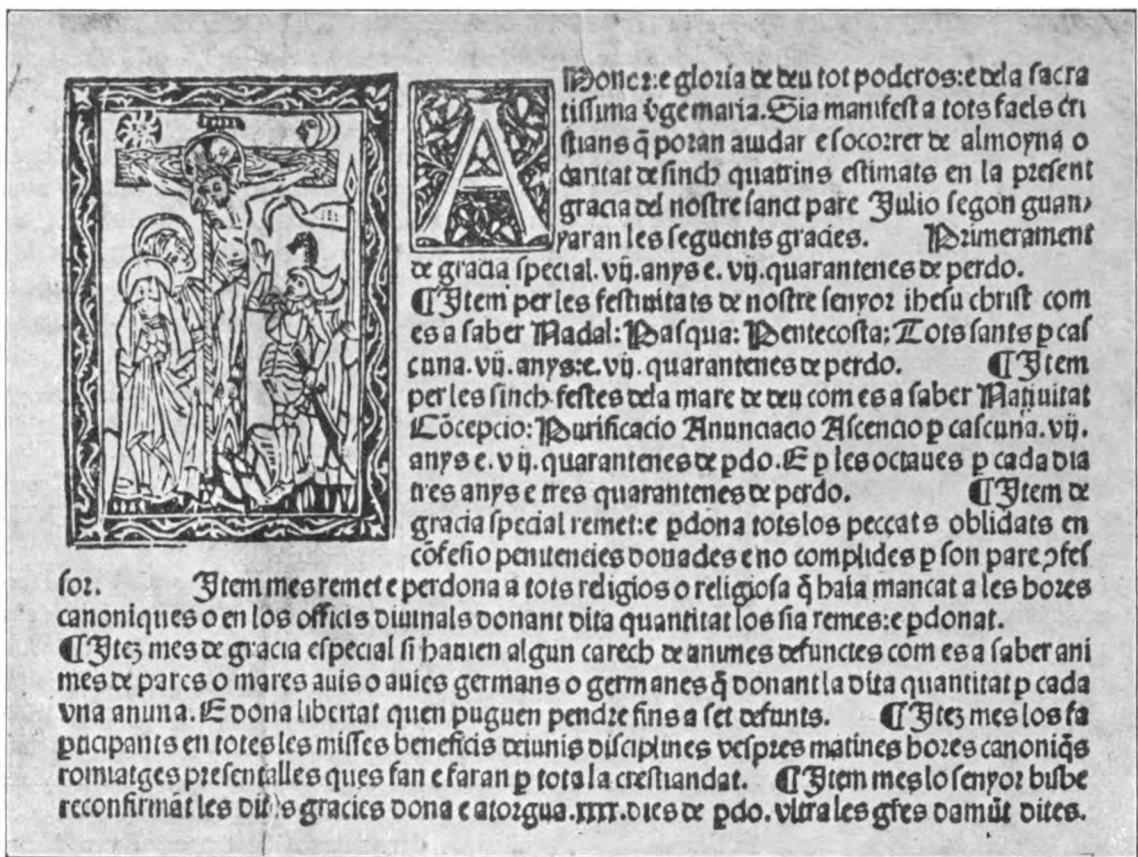 A Honer:e gloria de deu tot poderos:e dela sacra
tissima v̄ge maria. Sia manifest a tots faels cri
stians q̄ poran aiudar e socorrer de almoyna o
caritat de sinch quatrins estimats en la present
gracia del nostre sanct pare Julio segon guan/
yaran les seguents gracies. Primerament
de gracia special. vij. anys e. vij. quarantenes de perdo.
¶ Item per les festiuitats de nostre senyor ihesu christ com
es a saber Nadal: Pasqua: Pentecosta: Tots sants p cas
cuna. vij. anys:e. vij. quarantenes de perdo. ¶ Item
per les sinch festes dela mare de deu com es a saber Natiuitat
Cōcepcio: Purificacio Anunciacio Ascencio p cascuna. vij.
anys e. vij. quarantenes de pdo. E p les octaues p cada dia
tres anys e tres quarantenes de perdo. ¶ Item de
gracia special remet:e pdona tots los peccats oblidats en
cōfesio penitencies donades e no complides p son pare ɔfes
sor. Item mes remet e perdona a tots religios o religiosa q̄ haia mancat a les hores
canoniques o en los officis diuinals donant dita quantitat los sia remes:e pdonat.
¶ Iteʒ mes de gracia especial si hauien algun carech de animes defunctes com es a saber ani
mes de pares o mares auis o auies germans o germanes q̄ donant la dita quantitat p cada
vna anima. E dona libertat quen puguen pendre fins a set defunts. ¶ Iteʒ mes los fa
pticipants en totes les misses beneficis deiunis disciplines vespres matines hores canoniq̄s
romiatges presentalles ques fan e faran p tota la crestiandat. ¶ Item mes lo senyor bisbe
reconfirmāt les dites gracies dona e atorgua .xxxx. dies de pdo. vltra les gr̄es damūt dites.